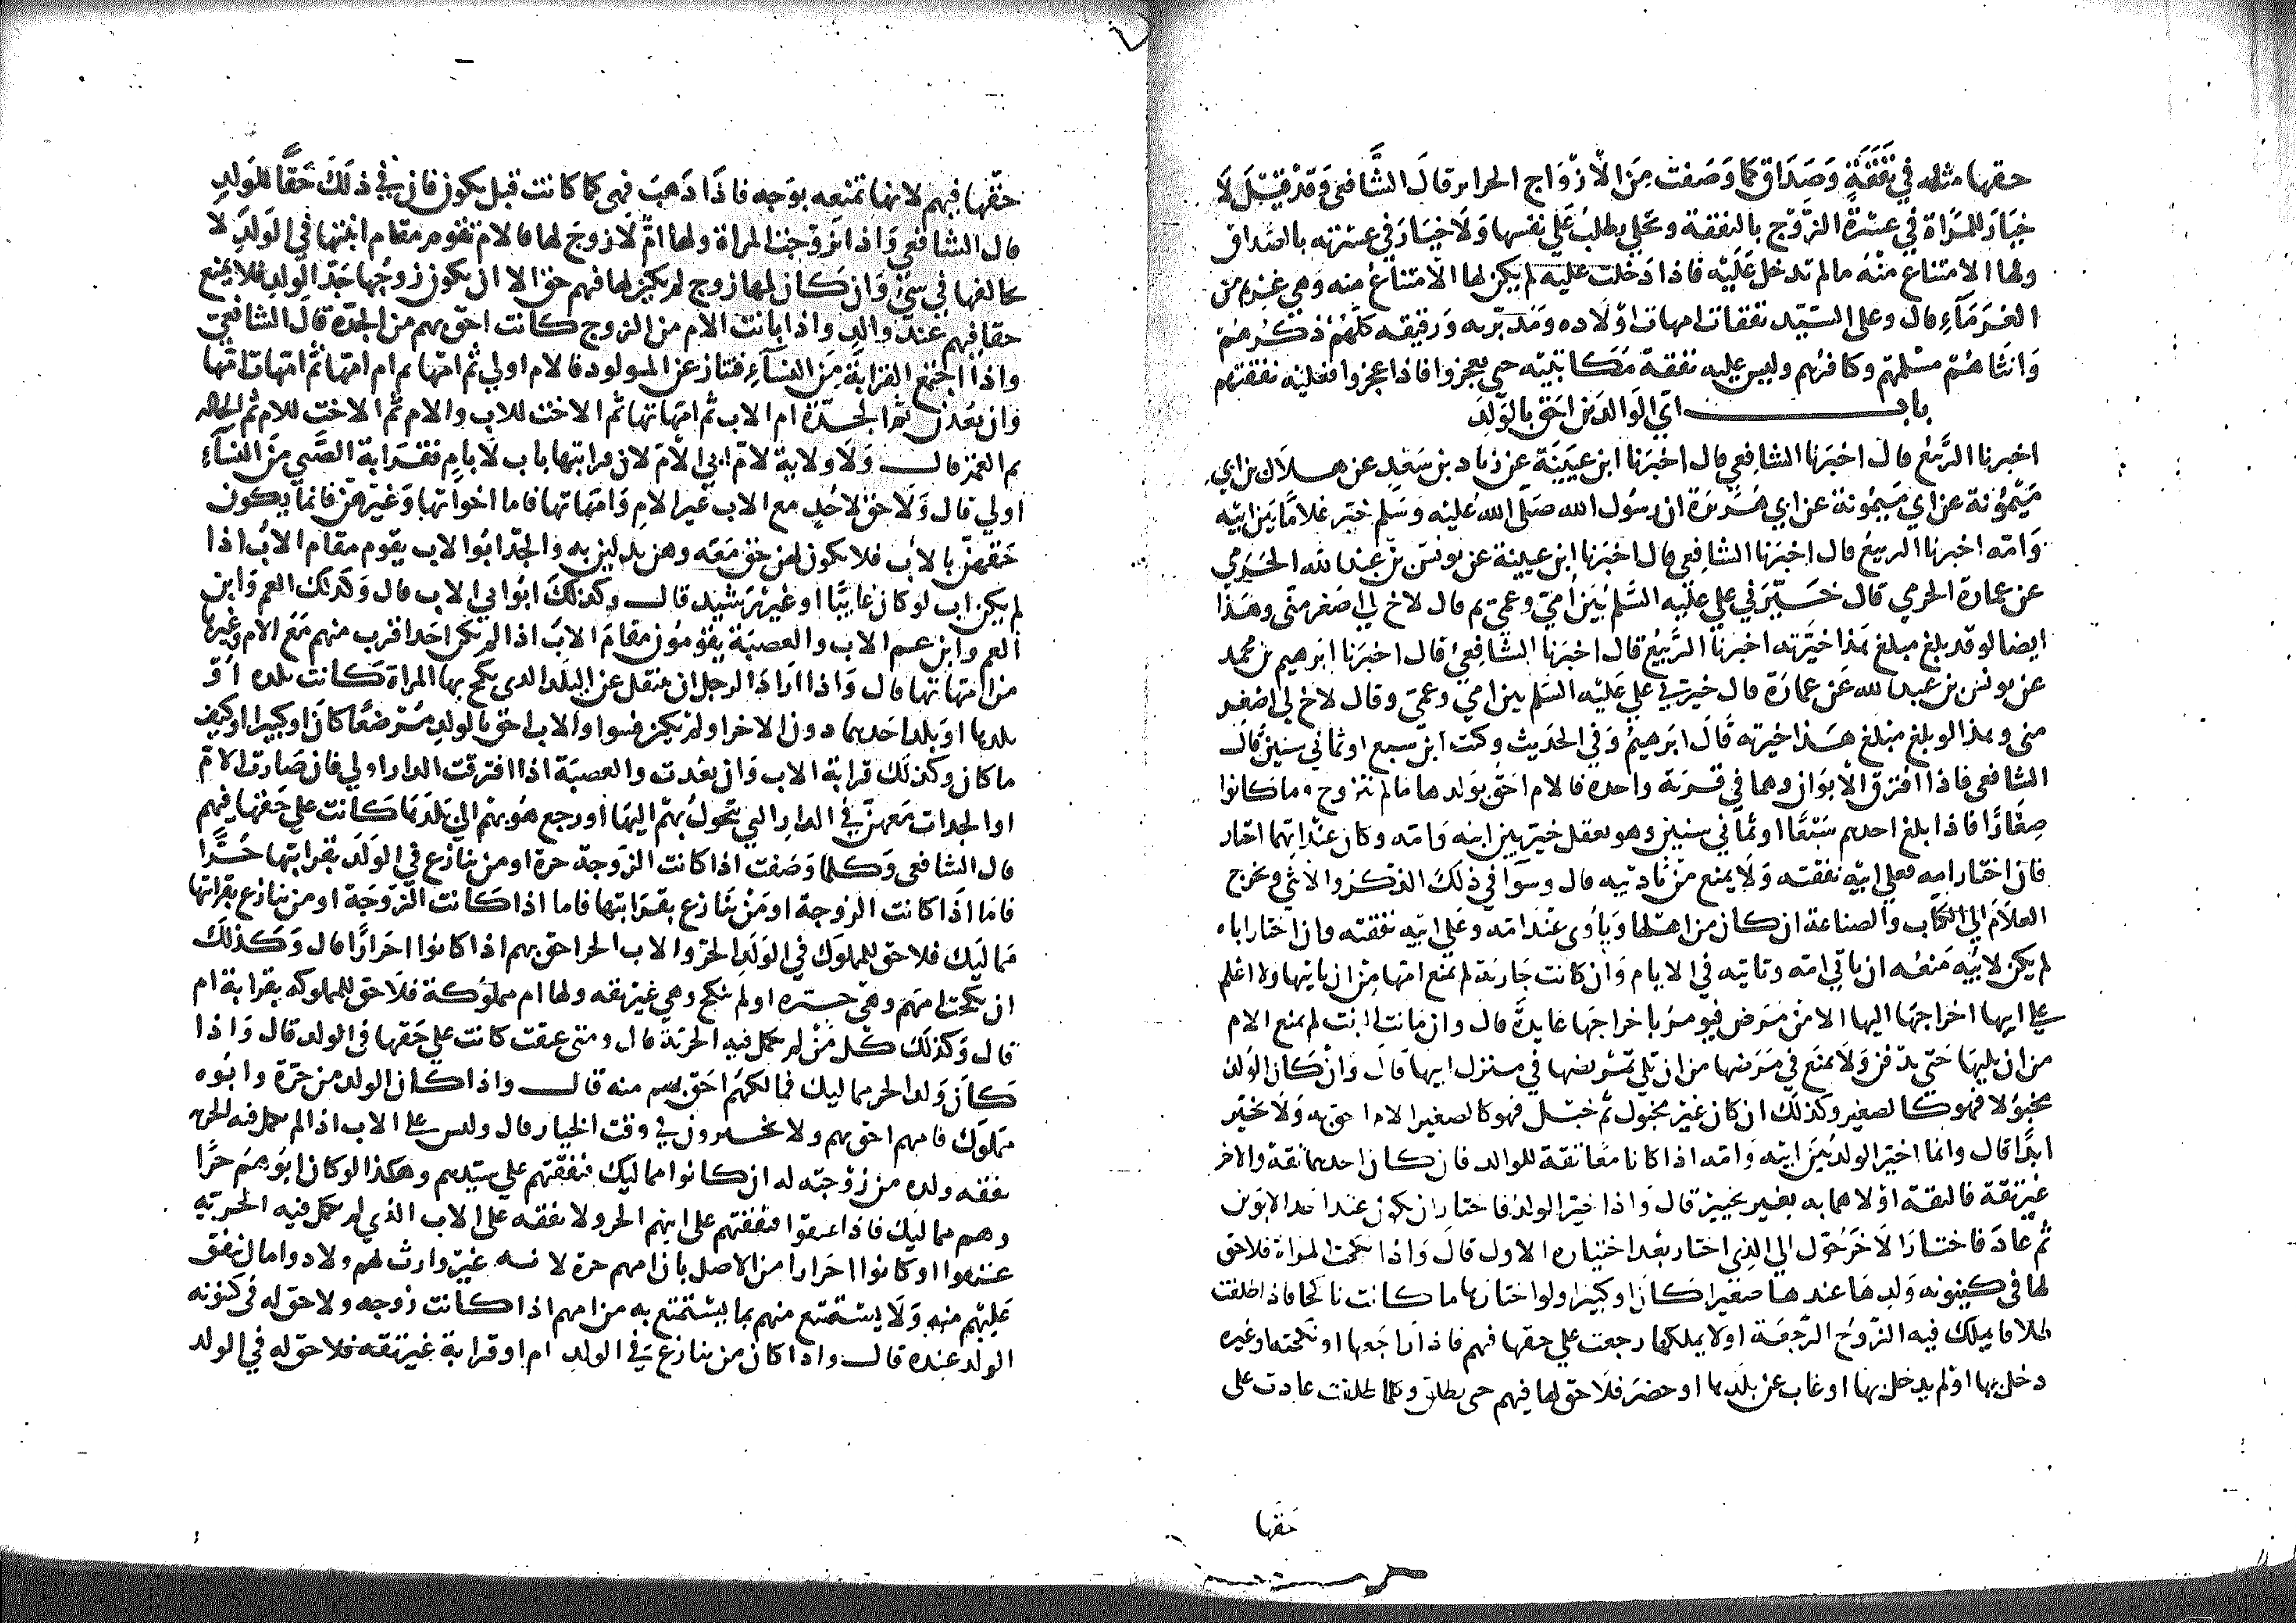 حقها مثله في نفقة وصداق كما وصفت من الازواج الحراير قال الشافعي وقد قيل لا
خيار للمراة في عسرة الزوج بالنفقة وتخلي وطلب على نفسها ولا خيار في عسرته بالصداق
ولها الامتناع منه مالم تدخل عليه فاذا دخلت عليه لم يكن لها الامتناع منه وهي غريم من
الغرماء قال وعلى السيد نفقات امهات اولاده ومدبريه ورقيقه كلهم ذكرهم
وانثاهم مسلمهم وكافرهم وليس عليه نفقة مكاتبيه حتى يعجزوا فاذا عجزوا فعليه نفقتهم
باب اي الوالدين احق بالولد
اخبرنا الربيع قال اخبرنا الشافعي قال اخبرنا ابن عيينة عن زياد بن سعد عن هلال بن ابي
ميمونة عن ابي ميمونة عن ابي هريرة ان رسول الله صلى الله عليه وسلم خير غلاما بين ابيه
وامه اخبرنا الربيع قال اخبرنا الشافعي قال اخبرنا ابن عيينة عن يونس بن عبد الله الجرمي
عن عمارة الجرمي قال خيرني علي عليه السلم بين امي وعمي ثم قال لاخ لي اصغر مني وهذا
ايضا لو قد بلغ مبلغ هذا خيرته اخبرنا الربيع قال اخبرنا الشافعي قال اخبرنا ابرهيم بن محمد
عن يونس بن عبد الله عن عمارة قال خيرني علي عليه السلم بين امي وعمي وقال لاخ لي اصغر
مني وهذا لو بلغ مبلغ هذا خيرته قال ابرهيم وفي الحديث وكنت ابن سبع او ثماني سنين قال
الشافعي فاذا افترق الابوان وهما في قرية واحدة فالام احق بولدها مالم تتزوج وما كانوا
صغارا فاذا بلغ احدهم سبعا او ثماني سنين وهو يعقل خير بين ابيه وامه وكان عند ايهما اختار
فان اختار امه فعلى ابيه نفقته ولا يمنع من تاديبه قال وسوا في ذلك الذكر والانثى ويخرج
الغلام الى الكتاب والصناعة ان كان من اهلها وياوى عند امه وعلى ابيه نفقته وان اختار اباه
لم يكن لابيه منعه ان ياتي امه وتاتيه في الايام وان كانت جارية لم تمنع امها من ان ياتيها ولا اعلم
على ابيها اخراجها اليها الا من مرض فيومر باخراجها عايدة قال وان ماتت البنت لم تمنع الام
من ان يليها حتى تدفن ولا تمنع في مرضها من ان تلي تمريضها في منزل ابيها قال وان كان الولد
مخبولا فهو كالصغير وكذلك ان كان غير مخبول ثم خبل فهو كالصغير الام احق به ولا يخير
ابدا قال وانما اخير الولد بين ابيه وامه اذا كانا معا ثقة للولد فان كان احدهما ثقة والاخر
غير ثقة فالثقة اولاهما به بغير تخيير قال واذا خير الولد فاختار ان يكون عند احد الابوين
ثم عاد فاختار الاخر حول الى الذي اختار بعد اختياره الاول قال واذا نكحت المراة فلا حق
لها في كينونه ولدها عندها صغيرا كان او كبيرا ولو اختارها ما كانت ناكحا فاذا طلقت
طلاقا يملك فيه الزوج الرجعة او لا يملكها رجعت على حقها فيهم فاذا راجعها او نكحته او غيره
دخل بها او لم يدخل بها او غاب عن بلدها او حضر فلا حق لها فيهم حتى يطلق وكلما طلقت عادت على
حقها
حقها فيهم لانها تمنعه بوجه فاذا ذهب فهي كما كانت قبل يكون فان في ذلك حقا للولد
قال الشافعي واذا تزوجت المراة ولها ام لا زوج لها فالام تقوم مقام ابنتها في الولد لا
تخالفها في شي وان كان لها زوج لم يكن لها فيهم حق الا ان يكون زوجها جد الولد فلا يمنع
حقا فيهم عند والد واذا بانت الام من الزوج كانت احق بهم من الجدة قال الشافعي
واذا اجتمع القرابة من النساء فتنازعن المولود فالام اولى ثم امها ثم ام امها ثم امهات امها
وان بعدن ثم الجدة ام الاب ثم امهاتها ثم الاخت للاب والام ثم الاخت للام ثم الخالة
ثم العمة قال ولا ولاية لام ابي الام لان قرابتها باب لا بام فقرابة الصبي من النساء
اولى قال ولا حق لاحد مع الاب غير الام وامهاتها فاما اخواتها وغيرهن فانما يكون
حقهن بالاب فلا يكون لهن حق معه وهن يدلين به والجد ابو الاب يقوم مقام الاب اذا
لم يكن اب لو كان غايبا او غير رشيد قال وكذلك ابو ابي الاب قال وكذلك العم وابن
العم وابن عم الاب والعصبة يقومون مقام الاب اذا لم يكن احد اقرب منهم مع الام وغيرها
من امهاتها قال واذا اراد الرجل ان ينتقل عن البلد الذي نكح بها المراة كانت بلده او
بلدها او بلد احدهما دون الاخر او لم يكن فسوا والاب احق بالولد مسترضعا كان او كبيرا او كيف
ما كان وكذلك قرابة الاب وان بعدت والعصبة اذا افترقت الدار اولى فان صارت الام
او الجدات معهن في الدار التي يتحول بهم اليها او رجع هو بهم الى بلدهما كانت على حقها فيهم
قال الشافعي وكلما وصفت اذا كانت الزوجة حرة او من ينازع في الولد بقرابتها حرا
فاما اذا كانت الزوجة او من ينازع بقرابتها فاما اذا كانت الزوجة او من ينازع بقرابتها
مماليك فلا حق للمملوك في الولد الحر والاب الحر احق بهم اذا كانوا احرارا قال وكذلك
ان نكحت امهم وهي حرة او لم تنكح وهي غير ثقه ولها ام مملوكة فلا حق للمملوكه بقرابة ام
قال وكذلك كل من لم تكمل فيه الحرية قال ومتى عتقت كانت على حقها في الولد قال واذا
كان ولد الحر مماليك فمالكهم احق بهم منه قال واذا كان الولد من حرة وابوه
مملوك فامهم احق بهم ولا يخيرون في وقت الخيار قال وليس على الاب اذا لم تكمل فيه الحريه
نفقه ولده من زوجته له ان كانوا مماليك فنفقتهم على سيدهم وهكذا لو كان ابوهم حرا
وهم مماليك فاذا عتقوا فنفقتهم على ابيهم الحر ولا نفقه على الاب الذي لم تكمل فيه الحريه
عتقوا او كانوا احرارا من الاصل بان امهم حرة لانه غير وارث لهم ولا ذو امال ينفق
عليهم منه ولا يستمتع منهم بما يستمتع به من امهم اذا كانت زوجه ولا حق له في كينونه
الولد عنده قال واذا كان من ينازع في الولد ام او قرابة غير ثقه فلا حق له في الولد